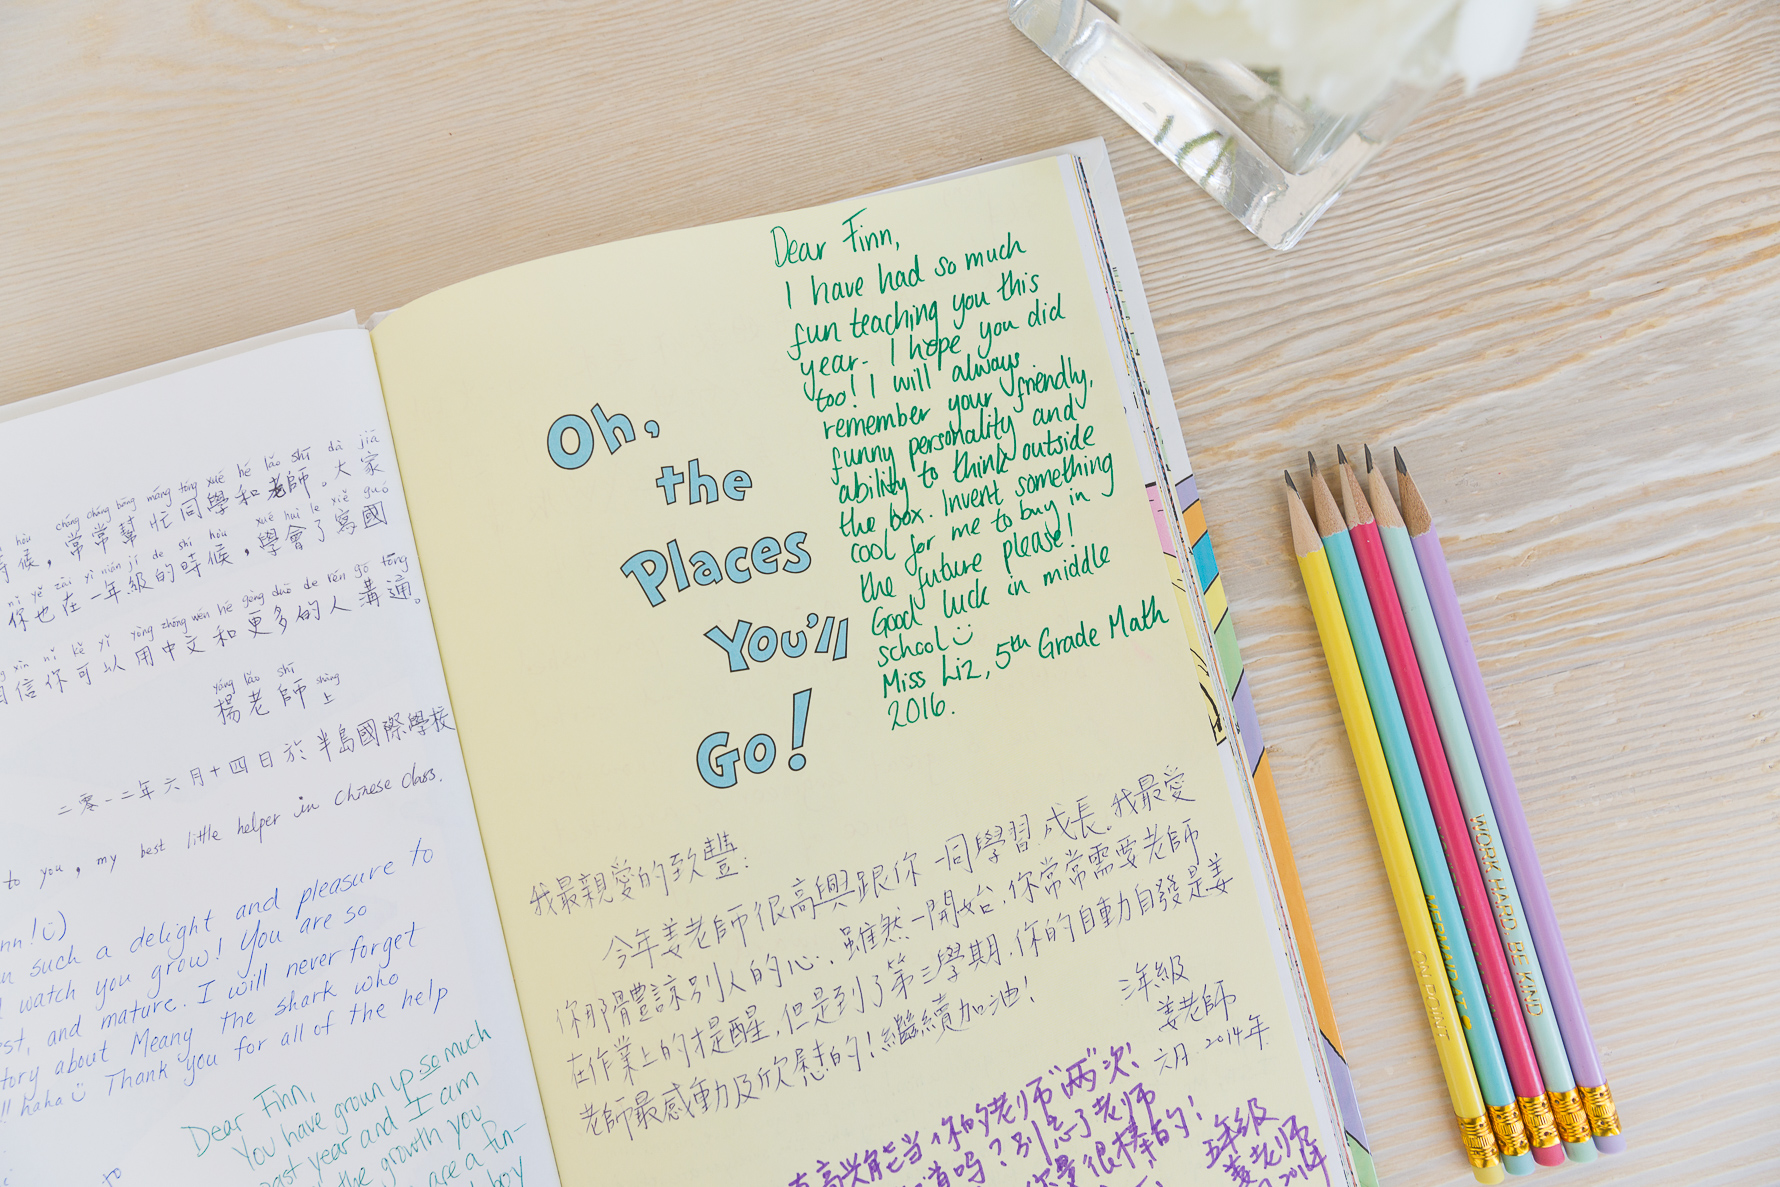 hòu cháng cháng bāng máng tóng xué hé lǎo shī dà jiā
時候，常常幫忙同學和老師。大家
nǐ yě zài yì nián jí de shí hòu xué huì le xiě guó
你也在一年級的時候，學會了寫國
xìn nǐ kě yǐ yòng zhōng wén hé gèng duō de rén gōu tōng
相信你可以用中文和更多的人溝通。
yáng lǎo shī shàng
楊老師上
二零一二年六月十四日於半島國際學校
to you, my best little helper in Chinese Class.
nn! ☺)
such a delight and pleasure to
watch you grow! You are so
st, and mature. I will never forget
tory about Meany the shark who
!! haha ☺ Thank you for all of the help
Dear Finn,
You have grown up so much
past year and I am
the growth you
are a fun-
boy
Oh,
the
Places
You'll
Go!
Dear Finn,
I have had so much
fun teaching you this
year. I hope you did
too! I will always
remember your friendly,
funny personality and
ability to think outside
the box. Invent something
cool for me to buy in
the future please!
Good luck in middle
school ☺
Miss Liz, 5th Grade Math
2016.
我最親愛的致豐：
今年姜老師很高興跟你一同學習.成長。我最愛
你那體諒別人的心.雖然一開始.你常常需要老師
在作業上的提醒,但是到了第三學期.你的自動自發是姜
老師最感動及欣慰的!繼續加油!
三年級
姜老師
六月.2014年
高兴能当你的老师"两"次!
道吗?别忘了老师
你是很棒的!
五年級
姜老师
2016年
ON POINT
MERMAID AT
WORK HARD. BE KIND